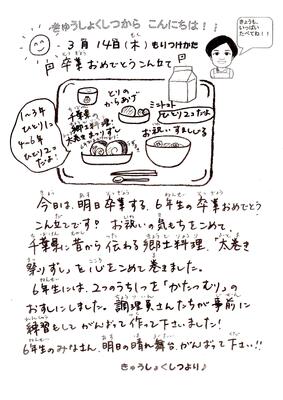 きゅうしょくしつから こんにちは！
きょうも、
いっぱい
たべてね！！
3月14日（木）もりつけかた
卒業おめでとうこんだて
1〜3年
ひとり1こ
4〜6年
ひとり2つ
だよ！
とりの
からあげ
千葉県の
郷土料理！
太巻きまつりずし
ミニトマト
ひとり2つだよ
お祝いすましじる
今日は、明日卒業する、6年生の卒業おめでとう
こんだてです！お祝いの気もちをこめて、
千葉県に昔から伝わる郷土料理、"太巻き
祭りずし"を心をこめて巻きました。
6年生には、2つのうち1つを「かたつむり」の
おすしにしました。調理員さんたちが事前に
練習をしてがんばって作って下さいました！
6年生のみなさん、明日の晴れ舞台、がんばって下さい！！
きゅうしょくしつより♪